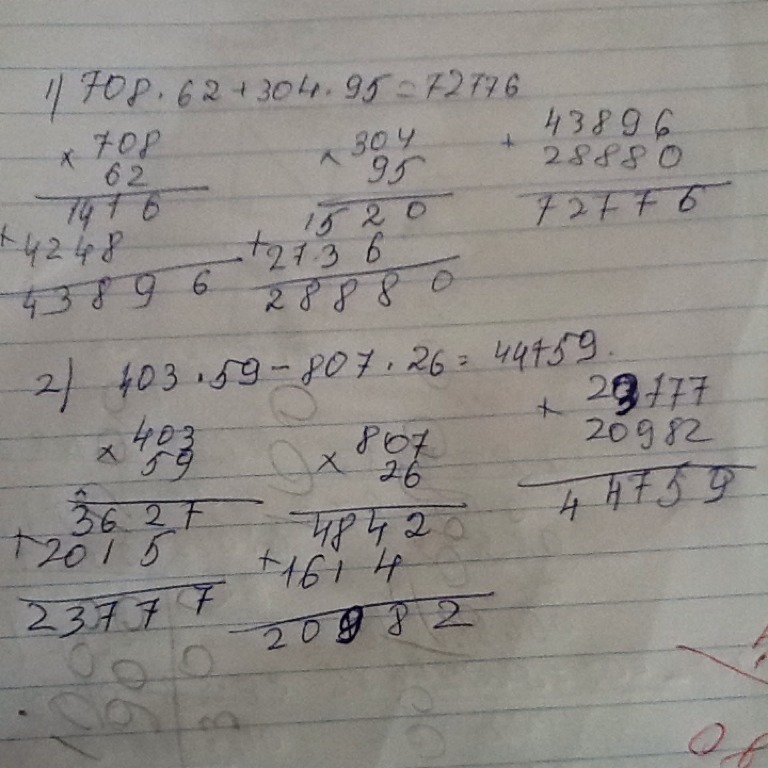 1) 708 · 62 + 304 · 95 = 72776
× 708
62
1416
+ 4248
43896
× 304
95
1520
+ 2736
28880
+ 43896
28880
72776
2) 403 · 59 - 807 · 26 = 44759.
× 403
59
3627
+ 2015
23777
× 807
26
4842
+ 1614
20982
+ 23777
20982
44759